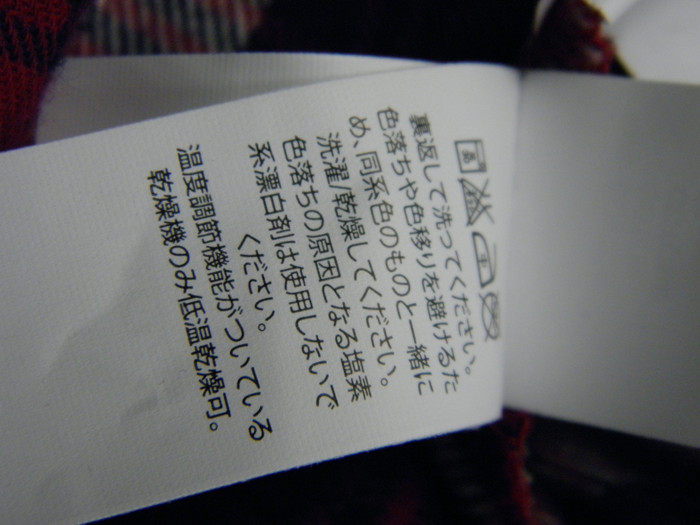 裏返して洗ってください。
色落ちや色移りを避けるた
め、同系色のものと一緒に
洗濯/乾燥してください。
色落ちの原因となる塩素
系漂白剤は使用しないで
ください。
温度調節機能がついている
乾燥機のみ低温乾燥可。